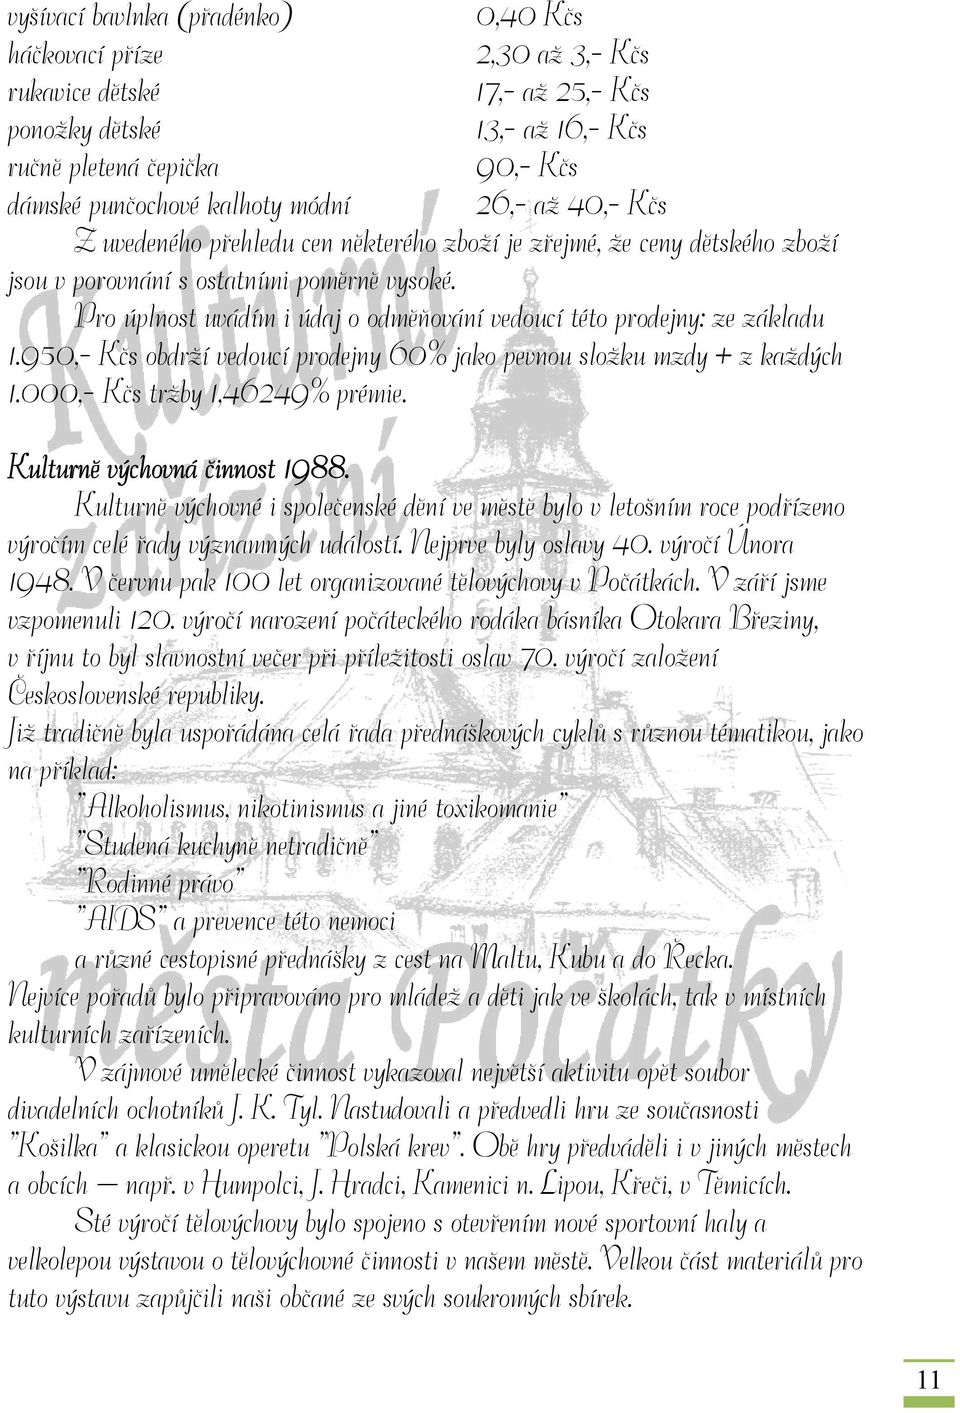 vyšívací bavlnka (přadénko) 0,40 Kčs
háčkovací příze 2,30 až 3,- Kčs
rukavice dětské 17,- až 25,- Kčs
ponožky dětské 13,- až 16,- Kčs
ručně pletená čepička 90,- Kčs
dámské punčochové kalhoty módní 26,- až 40,- Kčs
Z uvedeného přehledu cen některého zboží je zřejmé, že ceny dětského zboží
jsou v porovnání s ostatními poměrně vysoké.
Pro úplnost uvádím i údaj o odměňování vedoucí této prodejny: ze základu
1.950,- Kčs obdrží vedoucí prodejny 60% jako pevnou složku mzdy + z každých
1.000,- Kčs tržby 1,46249% prémie.
Kulturně výchovná činnost 1988.
Kulturně výchovné i společenské dění ve městě bylo v letošním roce podřízeno
výročím celé řady významných událostí. Nejprve byly oslavy 40. výročí Února
1948. V červnu pak 100 let organizované tělovýchovy v Počátkách. V září jsme
vzpomenuli 120. výročí narození počáteckého rodáka básníka Otokara Březiny,
v říjnu to byl slavnostní večer při příležitosti oslav 70. výročí založení
Československé republiky.
Již tradičně byla uspořádána celá řada přednáškových cyklů s různou tématikou, jako
na příklad:
"Alkoholismus, nikotinismus a jiné toxikomanie"
"Studená kuchyně netradičně"
"Rodinné právo"
"AIDS" a prevence této nemoci
a různé cestopisné přednášky z cest na Maltu, Kubu a do Řecka.
Nejvíce pořadů bylo připravováno pro mládež a děti jak ve školách, tak v místních
kulturních zařízeních.
V zájmové umělecké činnost vykazoval největší aktivitu opět soubor
divadelních ochotníků J. K. Tyl. Nastudovali a předvedli hru ze současnosti
"Košilka" a klasickou operetu "Polská krev". Obě hry předváděli i v jiných městech
a obcích – např. v Humpolci, J. Hradci, Kamenici n. Lipou, Křeči, v Těmicích.
Sté výročí tělovýchovy bylo spojeno s otevřením nové sportovní haly a
velkolepou výstavou o tělovýchovné činnosti v našem městě. Velkou část materiálů pro
tuto výstavu zapůjčili naši občané ze svých soukromých sbírek.
Kulturní
zařízení
města Počátky
11